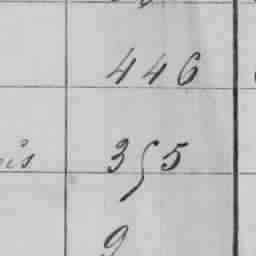 446
is 355
9